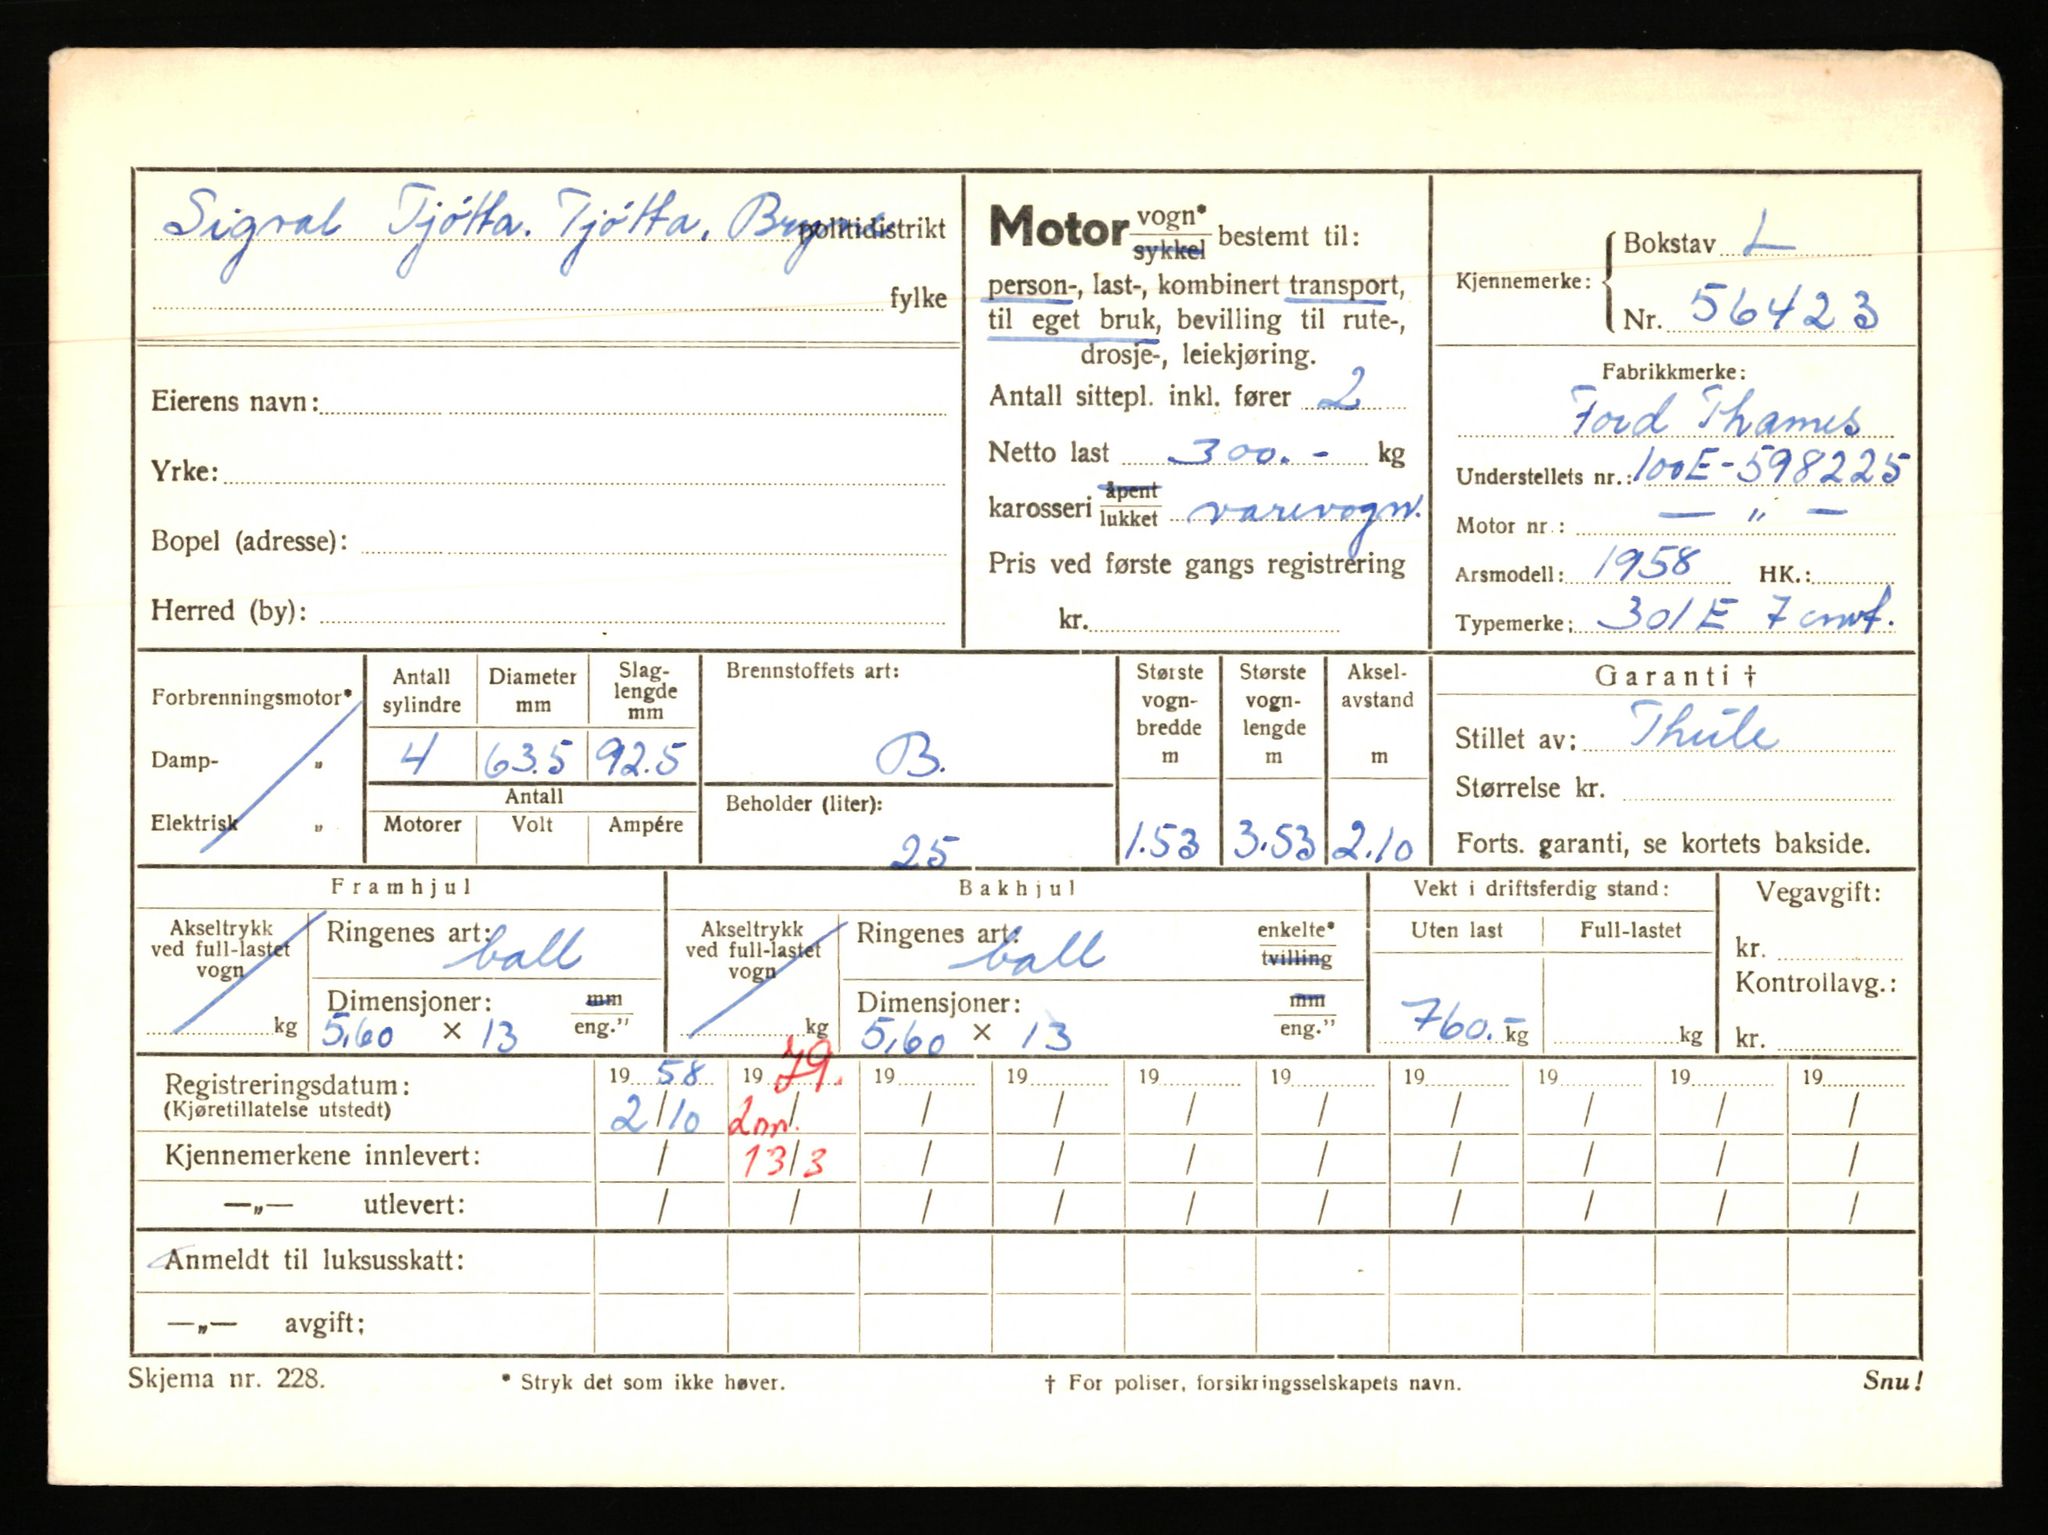 Sigval Tjøtta. Tjøtta, Bryne politidistrikt
fylke
Eierens navn:
Yrke:
Bopel (adresse):
Herred (by):
Motor vogn* sykkel bestemt til:
person-, last-, kombinert transport,
til eget bruk, bevilling til rute-,
drosje-, leiekjøring.
Antall sittepl. inkl. fører 2
Netto last 300.- kg
karosseri åpent lukket varevogn.
Pris ved første gangs registrering
kr.
Kjennemerke: Bokstav L
Nr. 56423
Fabrikkmerke:
Ford Thames
Understellets nr.: 100E-598225
Motor nr.: — " —
Arsmodell: 1958 HK.:
Typemerke: 301E 7 cwt.
Forbrenningsmotor*
Damp- „
Elektrisk „
Antall sylindre
4
Diameter mm
63.5
Slag-lengde mm
92.5
Antall
Motorer Volt Ampére
Brennstoffets art:
B.
Beholder (liter):
25
Største vogn-bredde m
1.53
Største vogn-lengde m
3.53
Aksel-avstand m
2.10
Garanti †
Stillet av: Thule
Størrelse kr.
Forts. garanti, se kortets bakside.
Framhjul
Akseltrykk ved full-lastet vogn
kg
Ringenes art: ball
Dimensjoner: mm
5,60 × 13 eng."
Bakhjul
Akseltrykk ved full-lastet vogn
kg
Ringenes art: ball enkelte* tvilling
Dimensjoner: mm
5,60 × 13 eng."
Vekt i driftsferdig stand:
Uten last Full-lastet
760.- kg kg
Vegavgift:
kr.
Kontrollavg.:
kr.
Registreringsdatum: 19 58 19 79. 19 19 19 19 19 19 19 19
(Kjøretillatelse utstedt) 2/10 / / / / / / / / /
Kjennemerkene innlevert: / 13/3 / / / / / / / /
—„— utlevert: / / / / / / / / / /
Anmeldt til luksusskatt:
—„— avgift:
Skjema nr. 228. * Stryk det som ikke høver. † For poliser, forsikringsselskapets navn. Snu!